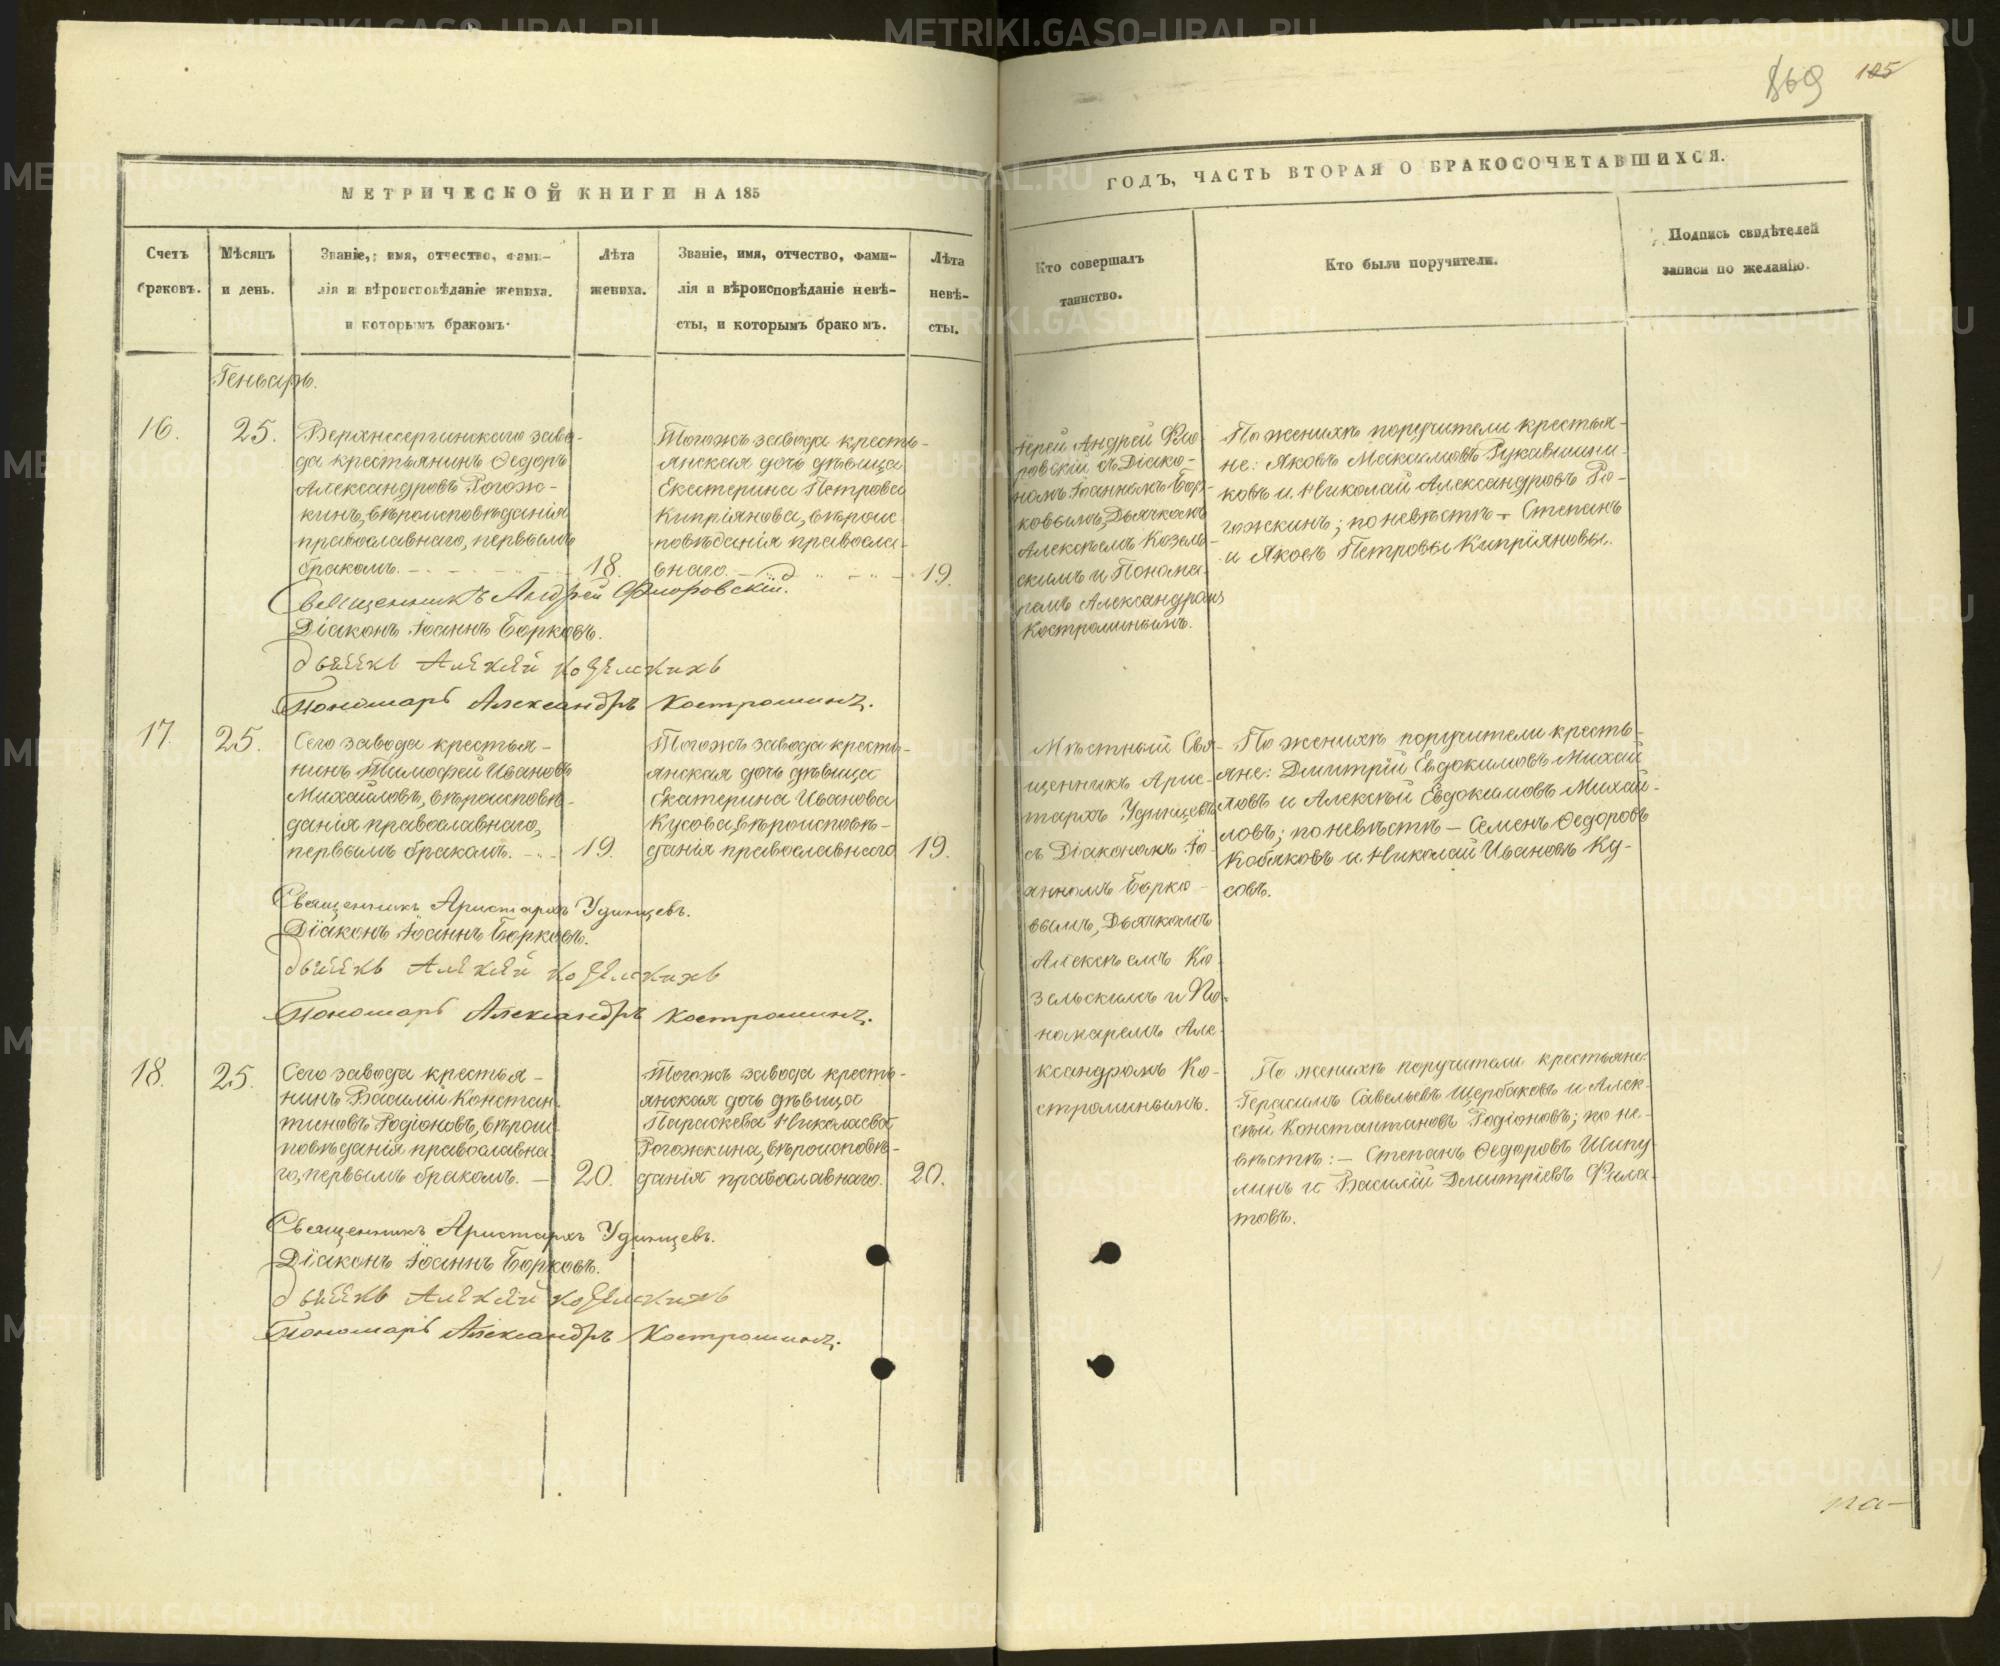 169 105
МЕТРИЧЕСКОЙ КНИГИ НА 185
ГОДЪ, ЧАСТЬ ВТОРАЯ О БРАКОСОЧЕТАВШИХСЯ.
Счетъ
браковъ.
Мѣсяцъ
и день.
Званіе, имя, отчество, фами-
лія и вѣроисповѣданіе жениха.
и которымъ бракомъ.
Лѣта
жениха.
Званіе, имя, отчество, фами-
лія и вѣроисповѣданіе невѣ-
сты, и которымъ бракомъ.
Лѣта
невѣ-
сты.
Кто совершалъ
таинство.
Кто были поручители.
Подпись свидѣтелей
записи по желанію.
Генварь.
16.
25.
Верхнесергинскаго заво-
да крестьянинъ Ѳедоръ
Александровъ Рогож-
кинъ, вѣроисповѣданія
православнаго, первымъ
бракомъ.
18.
Тогожъ завода кресть-
янская дочь дѣвица
Екатерина Петрова
Кипріянова, вѣроис
повѣданія правосла-
внаго.
19.
Іерей Андрей Фло-
ровскій съ Діако-
номъ Іоанномъ Бор-
ковымъ, Дьячкомъ
Алексѣемъ Козель-
скимъ и Понома-
ремъ Александромъ
Костроминымъ.
По женихѣ поручители крестья-
не: Яковъ Максимовъ Рукавишни-
ковъ и Николай Александровъ Ро-
гожкинъ; по невѣстѣ - Степанъ
и Яковъ Петровы Кипріяновы.
Священникъ Андрей Флоровскій.
Діаконъ Іоаннъ Борковъ.
Дьячекъ Алексѣй Козельскихъ
Пономарь Александръ Костроминъ.
17.
25.
Сего завода крестья-
нинъ Тимофей Ивановъ
Михайловъ, вѣроисповѣ-
данія православнаго,
первымъ бракомъ.
19.
Тогожъ завода кресть-
янская дочь дѣвица
Екатерина Иванова
Кусова, вѣроисповѣ-
данія православнаго
19.
Мѣстный Свя-
щенникъ Арис-
тархъ Удинцевъ
съ Діакономъ Іо-
анномъ Борко-
вымъ, Дьячкомъ
Алексѣемъ Ко-
зельскимъ и По-
номаремъ Але-
ксандромъ Ко-
строминымъ.
По женихѣ поручители кресть-
яне: Дмитрій Евдокимовъ Михай
ловъ и Алексѣй Евдокимовъ Михай-
ловъ; по невѣстѣ - Семенъ Ѳедоровъ
Кобяковъ и Николай Ивановъ Ку-
совъ.
Священникъ Аристархъ Удинцевъ.
Діаконъ Іоаннъ Борковъ.
Дьячекъ Алексѣй Козельскихъ
Пономарь Александръ Костроминъ.
18.
25.
Сего завода крестья-
нинъ Василій Констан
тиновъ Родіоновъ, вѣроис
повѣданія православна
го, первымъ бракомъ.
20.
Тогожъ завода кресть-
янская дочь дѣвица
Параскева Николаева
Рогожкина, вѣроисповѣ-
данія православнаго.
20.
По женихѣ поручители крестьяне:
Герасимъ Савельевъ Щербаковъ и Алек-
сѣй Константиновъ Родіоновъ; по не-
вѣстѣ: - Степанъ Ѳедоровъ Шипу
линъ и Василій Дмитріевъ Фила-
товъ.
Священникъ Аристархъ Удинцевъ.
Діаконъ Іоаннъ Борковъ.
Дьячекъ Алексѣй Козельскихъ
Пономарь Александръ Костроминъ.
па-
METRIKI.GASO-URAL.RU